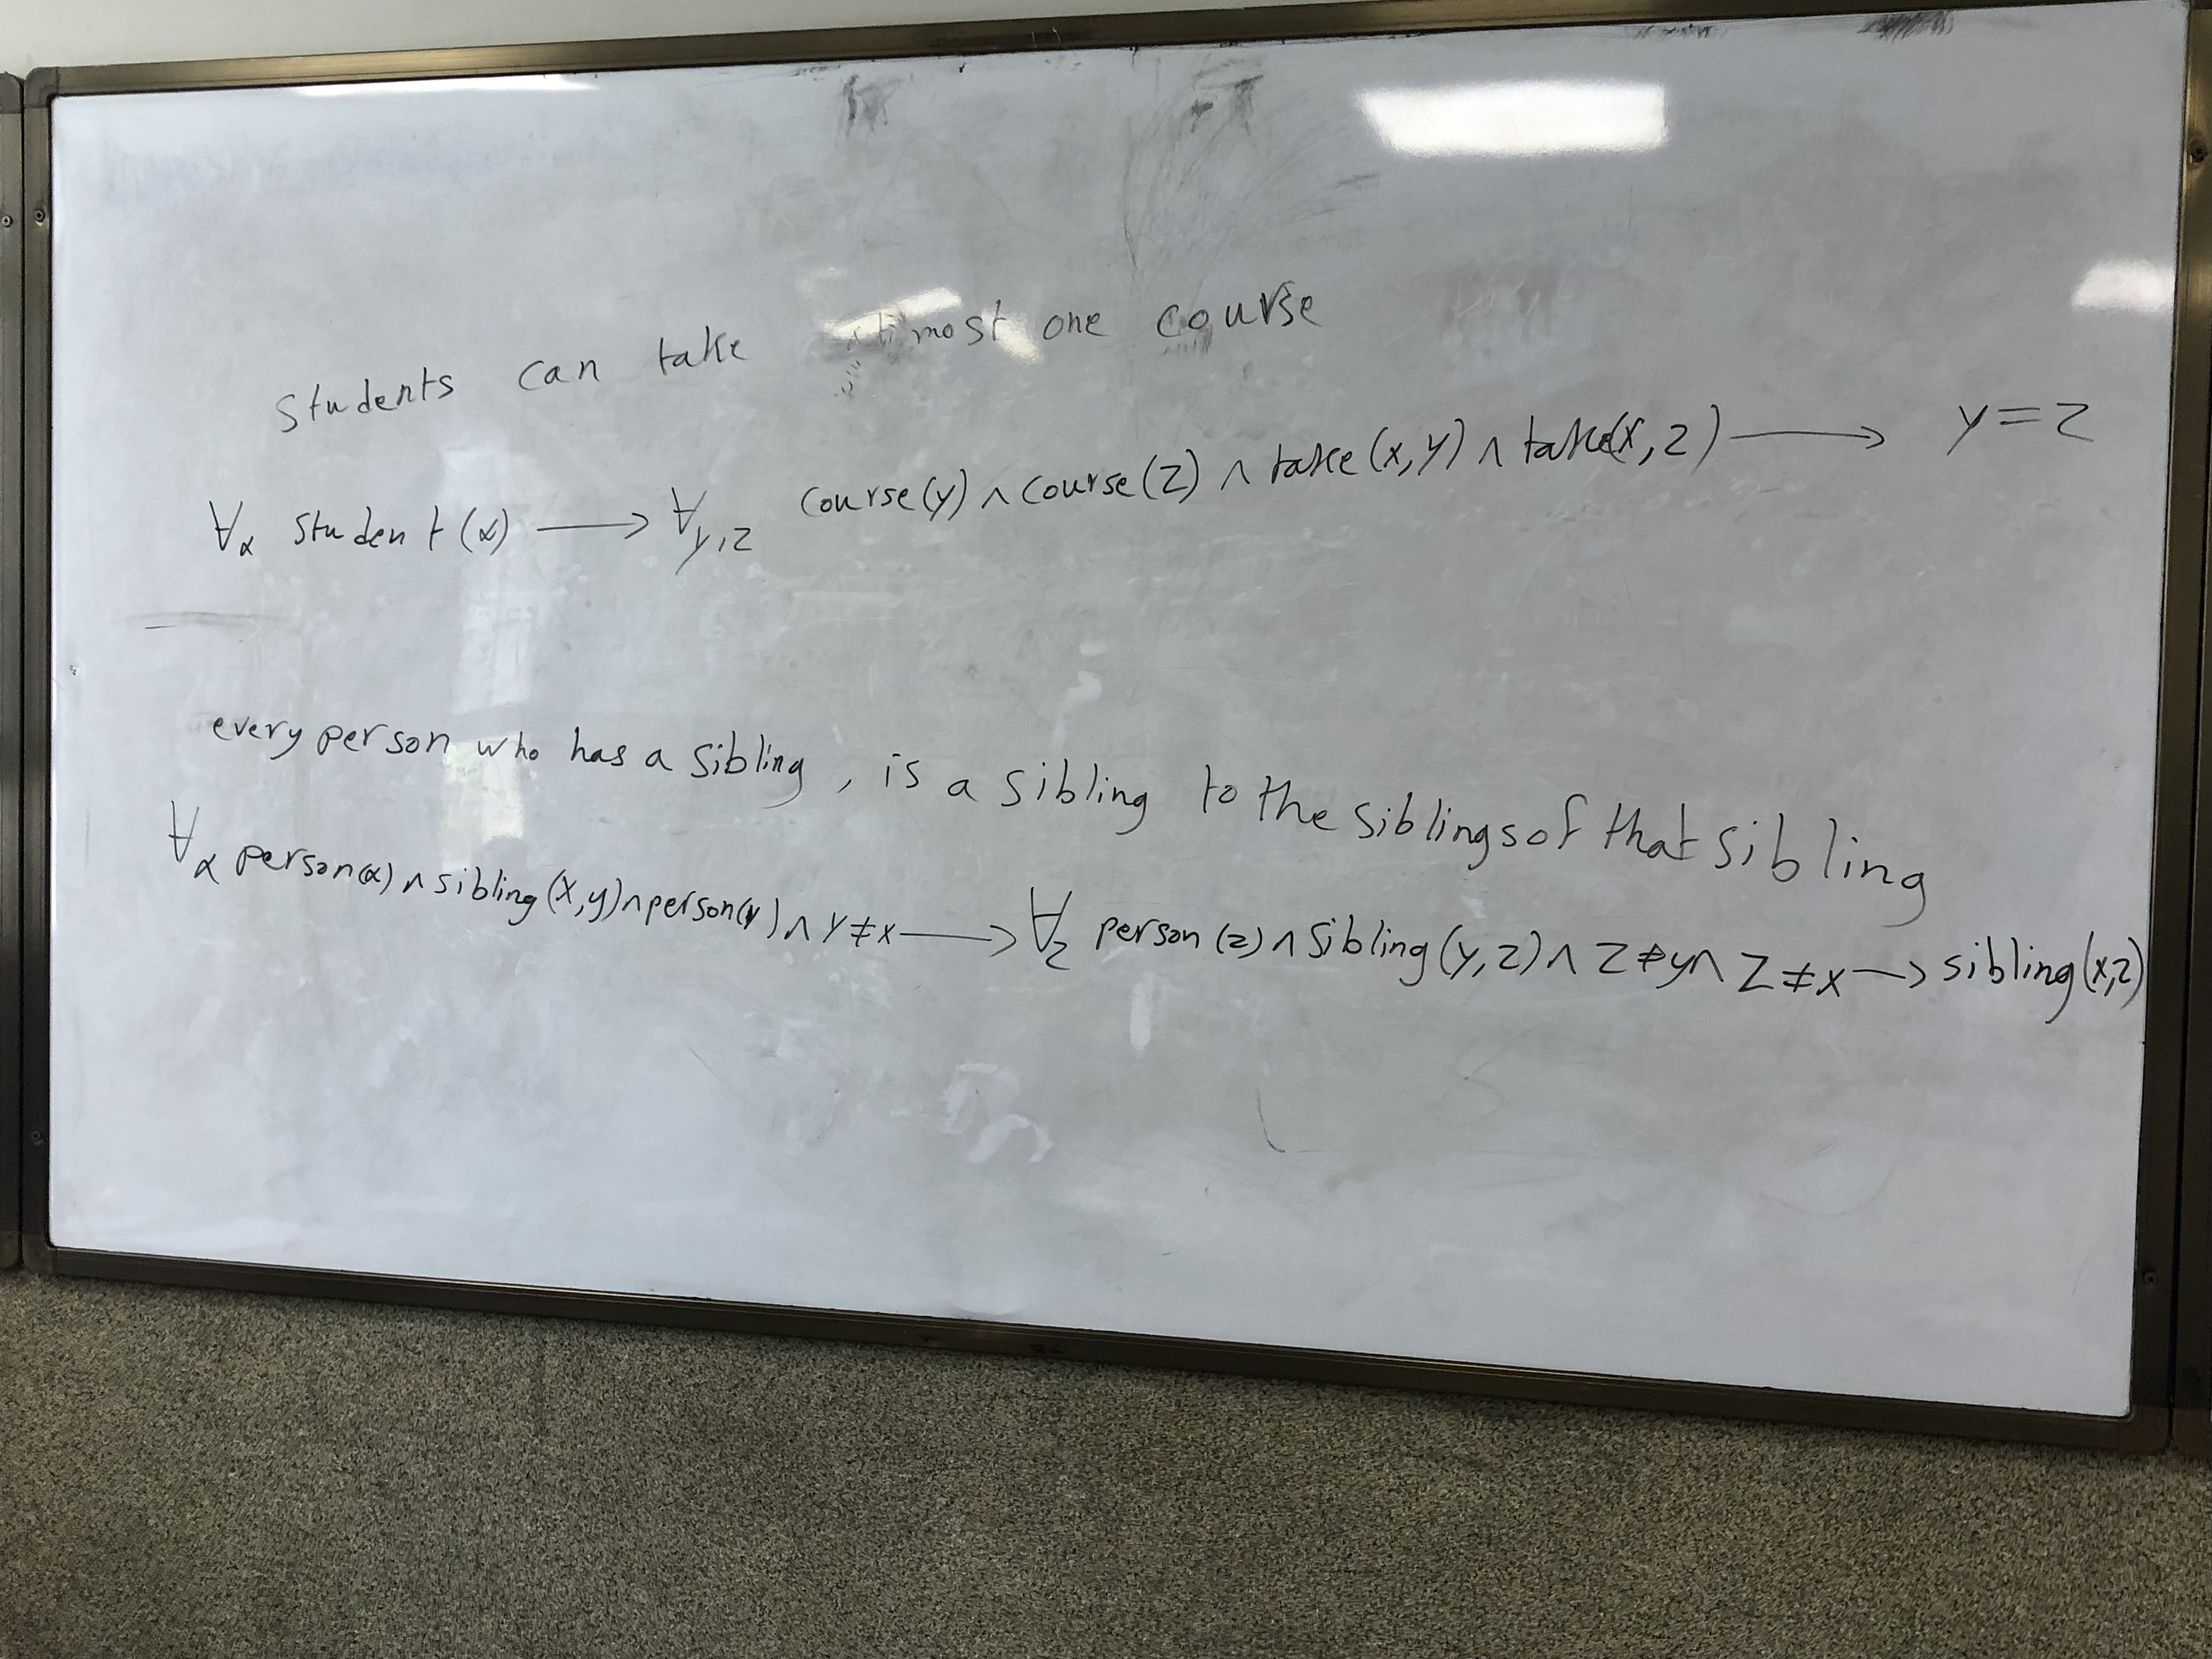 Students can take atmost one course
∀x student(x) ⟶ ∀y,z course(y) ∧ course(z) ∧ take(x,y) ∧ take(x,z) ⟶ y=z
every person who has a sibling, is a sibling to the siblings of that sibling
∀x person(x) ∧ sibling(x,y) ∧ person(y) ∧ y≠x ⟶ ∀z person(z) ∧ sibling(y,z) ∧ z≠y ∧ z≠x ⟶ sibling(x,z)